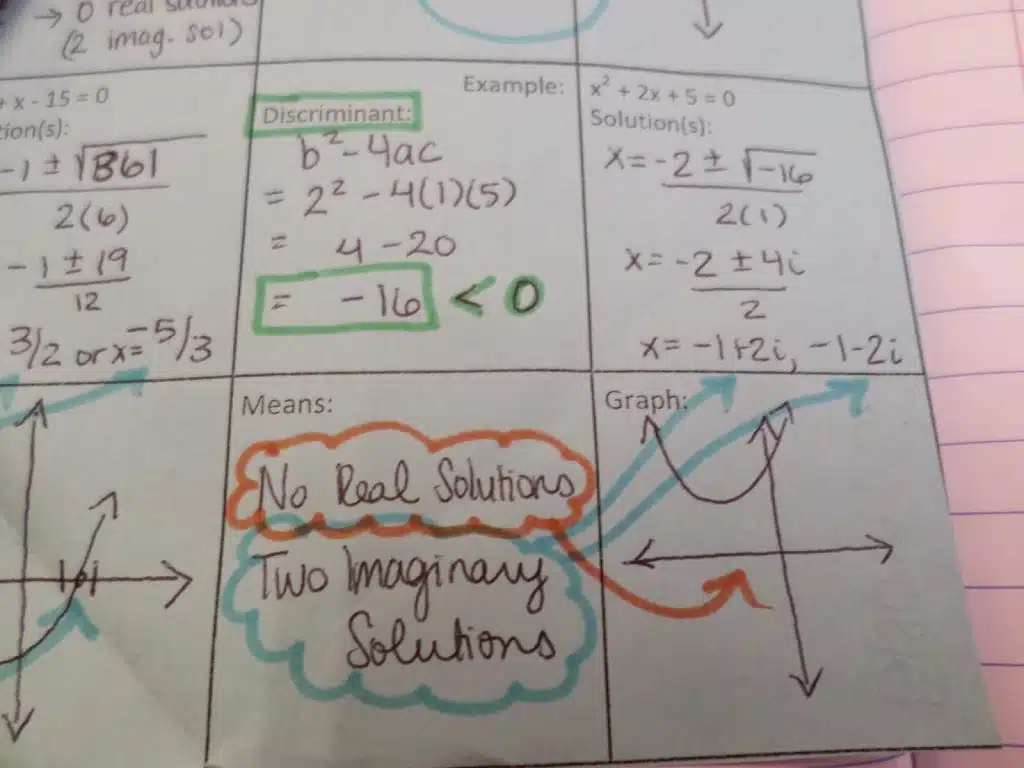 → 0 real solutions
(2 imag. sol)
+ x - 15 = 0
tion(s):
-1 ± √361
2(6)
-1 ± 19
12
3/2 or x= -5/3
Example:
Discriminant:
b² - 4ac
= 2² - 4(1)(5)
= 4 - 20
= -16 < 0
x² + 2x + 5 = 0
Solution(s):
x = -2 ± √-16
2(1)
x = -2 ± 4i
2
x = -1+2i, -1-2i
Means:
No Real Solutions
Two Imaginary
Solutions
Graph: